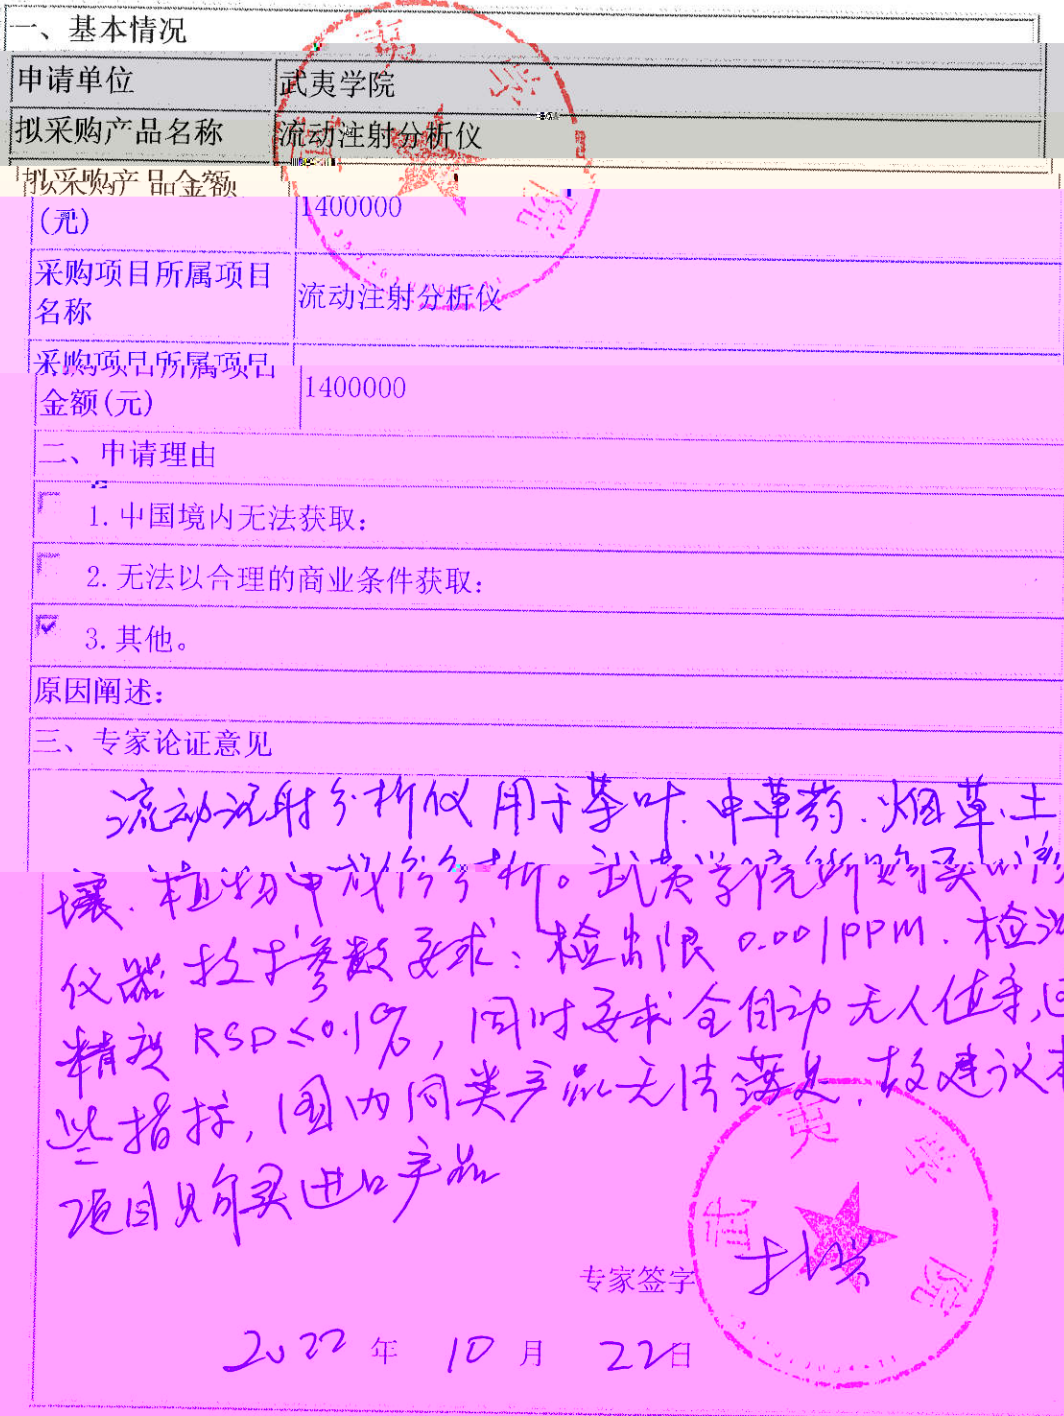 一、基本情况
申请单位 武夷学院
拟采购产品名称 流动注射分析仪
拟采购产品金额
(元) 1400000
采购项目所属项目
名称 流动注射分析仪
采购项目所属项目
金额(元) 1400000
二、申请理由
1.中国境内无法获取:
2.无法以合理的商业条件获取:
3.其他。
原因阐述:
三、专家论证意见
流动注射分析仪用于茶叶.中草药.烟草.土
壤.植物中成份分析。武夷学院所购买的该
仪器技术参数要求:检出限 0.001PPM.检测
精度 RSD≤0.1%,同时要求全自动无人值守,这
些指标,国内同类产品无法满足,故建议本
项目购买进口产品
专家签字
2022 年 10 月 22日
武夷学院
武夷学院